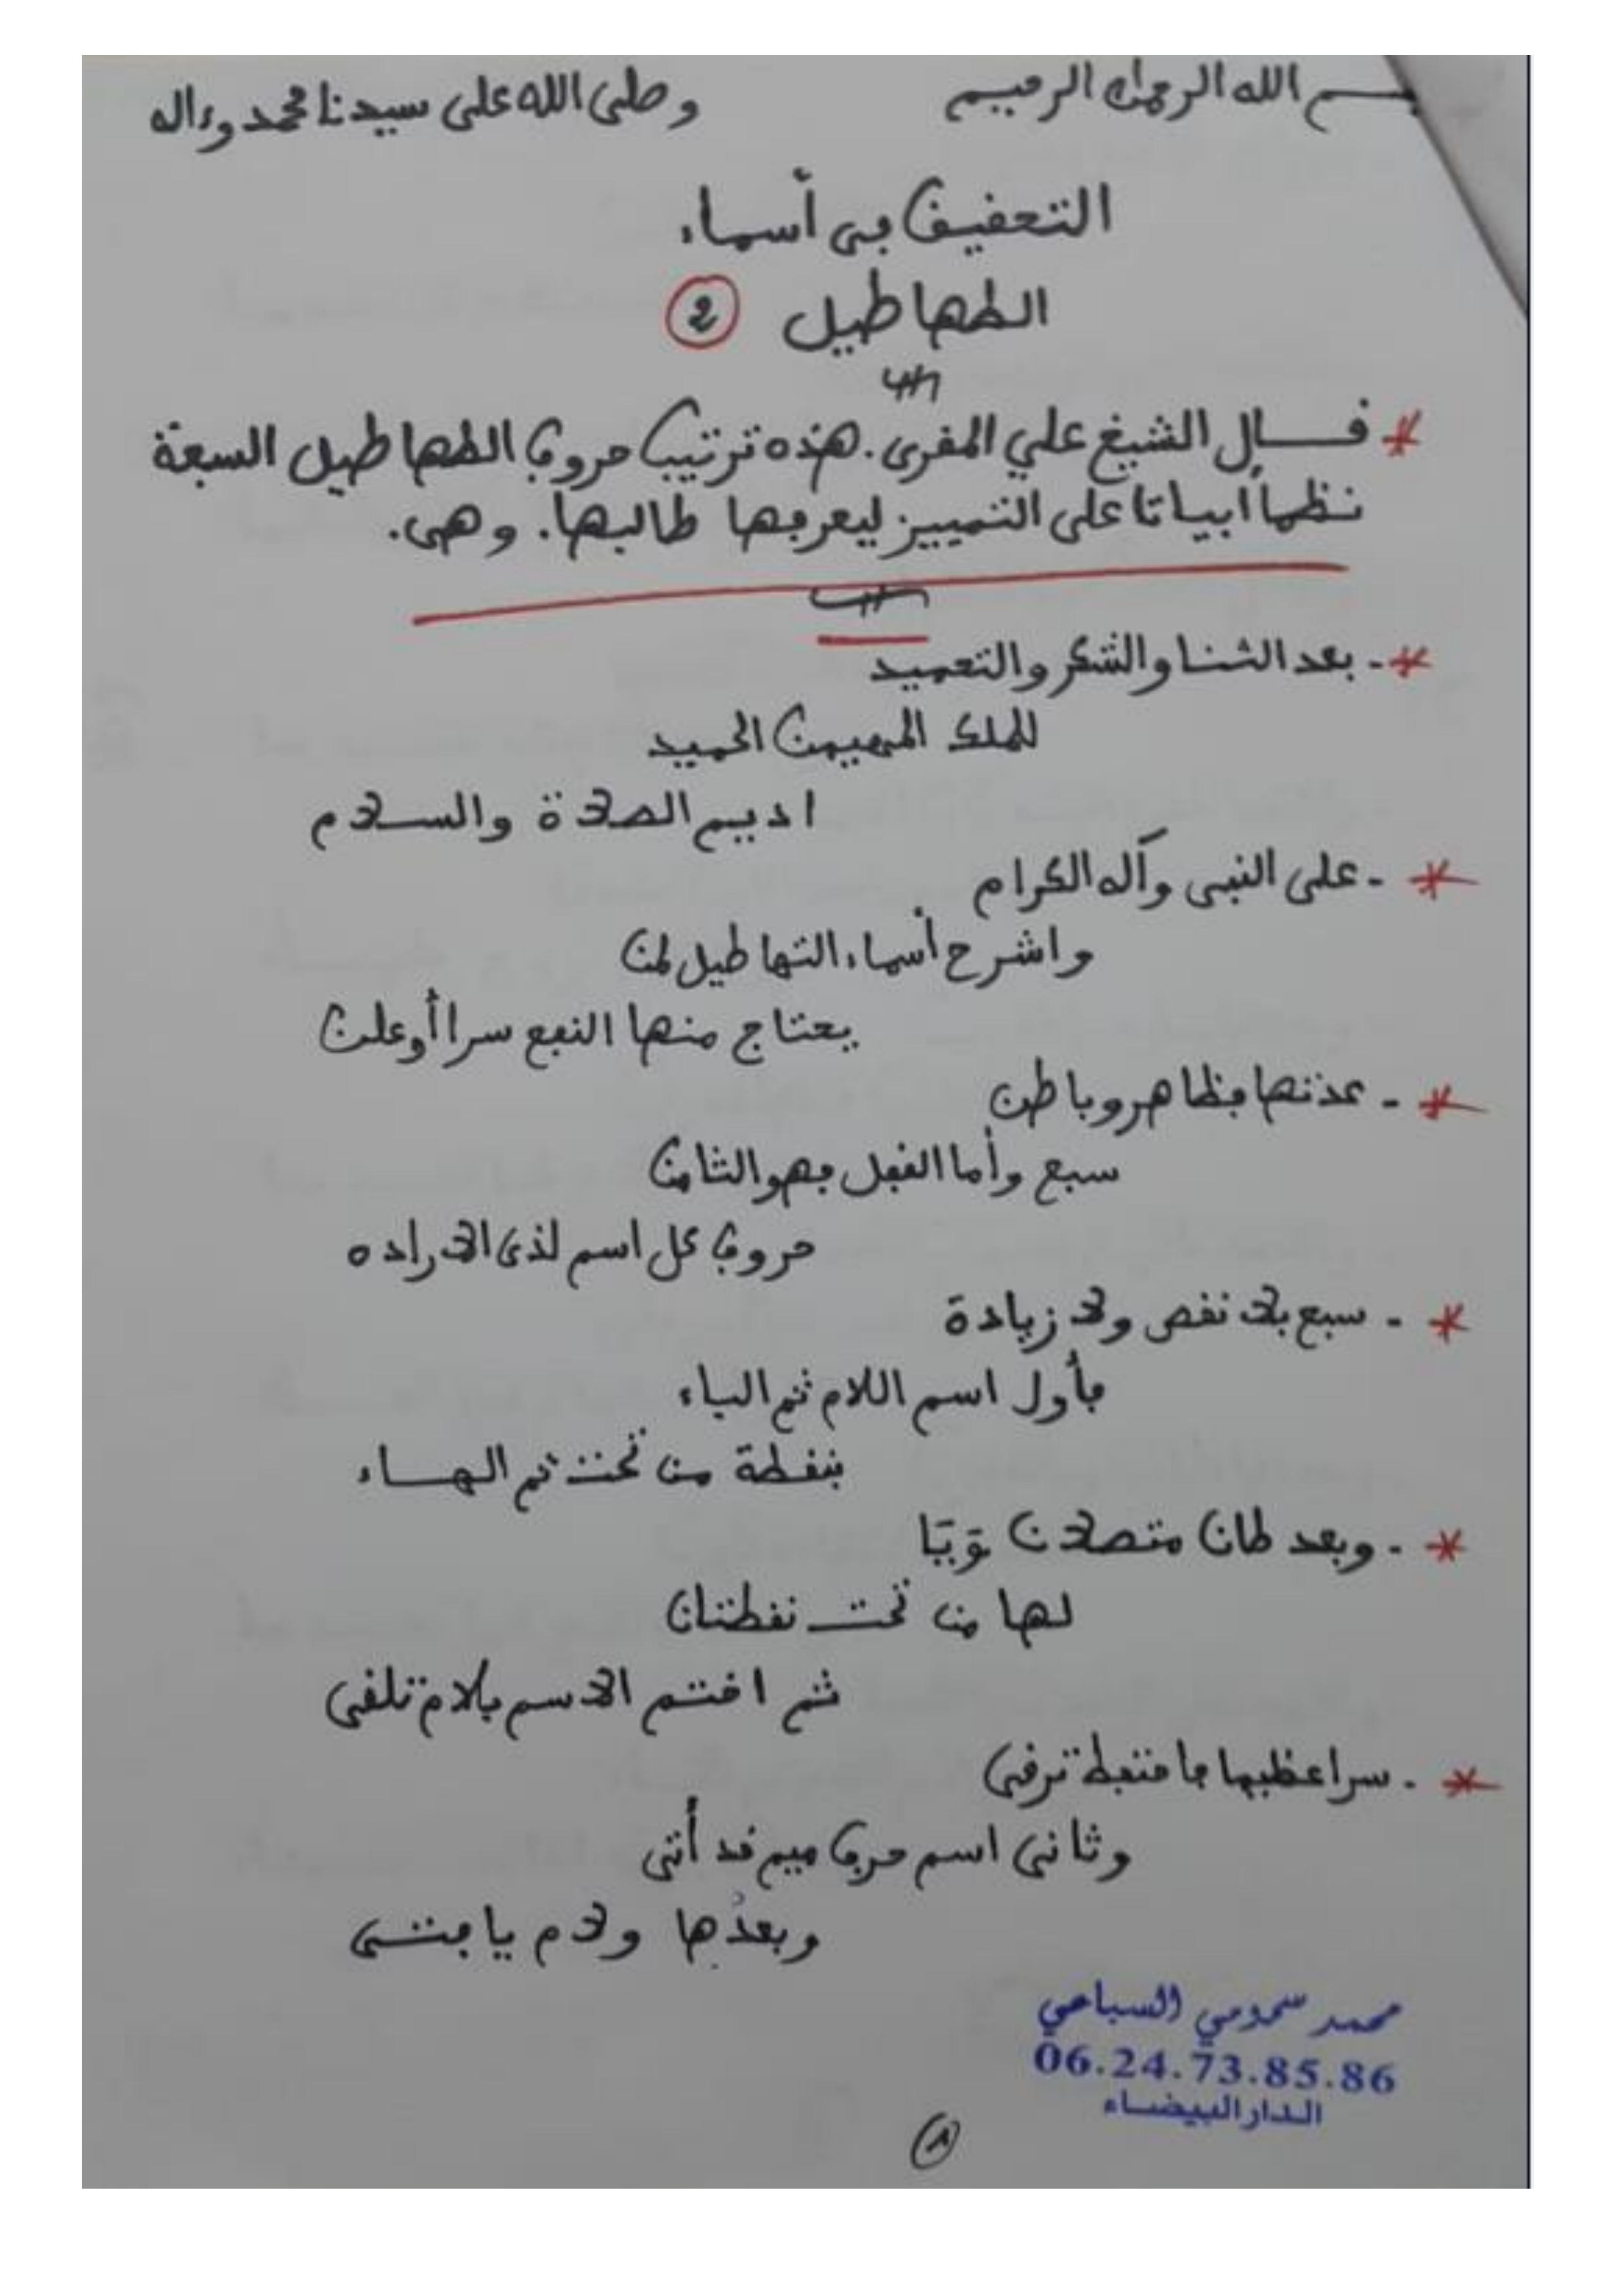 بسم الله الرحمان الرحيم وصلى الله على سيدنا محمد وءاله
التحفيف في أسماء
الطهاطيل 2
* فـــال الشيخ علي المفرى. هذه ترتيب حروف الطهاطيل السبعة
نظماً أبياتا على التمييز ليعرفها طالبها. وهى.
* - بعد الثنا والشكر والتحميد
للملك المهيمن الحميد
اديم الصلاة والسلام
* - على النبى وآله الكرام
واشرح أسماء التهاطيل لمن
يحتاج منها النفع سرا أو علن
* - عدتها فظاهر وباطن
سبع وأما الففل فهو الثامن
حروف كل اسم لذى الاراده
* - سبع بلا نفص ولا زيادة
فأول اسم اللام ثم الباء
بنفطة من تحت ثم الهاء
* - وبعد طان متصلان
لها من تحت نفطتان
ثم اختم الاسم بلام تلفى
* - سرا عظيما فاحتفظ ترفى
وثانى اسم حرف ميم فد أتى
وبعدها ولام يا فتـى
محمد سحومي السباعي
06.24.73.85.86
الدار البيضاء
1